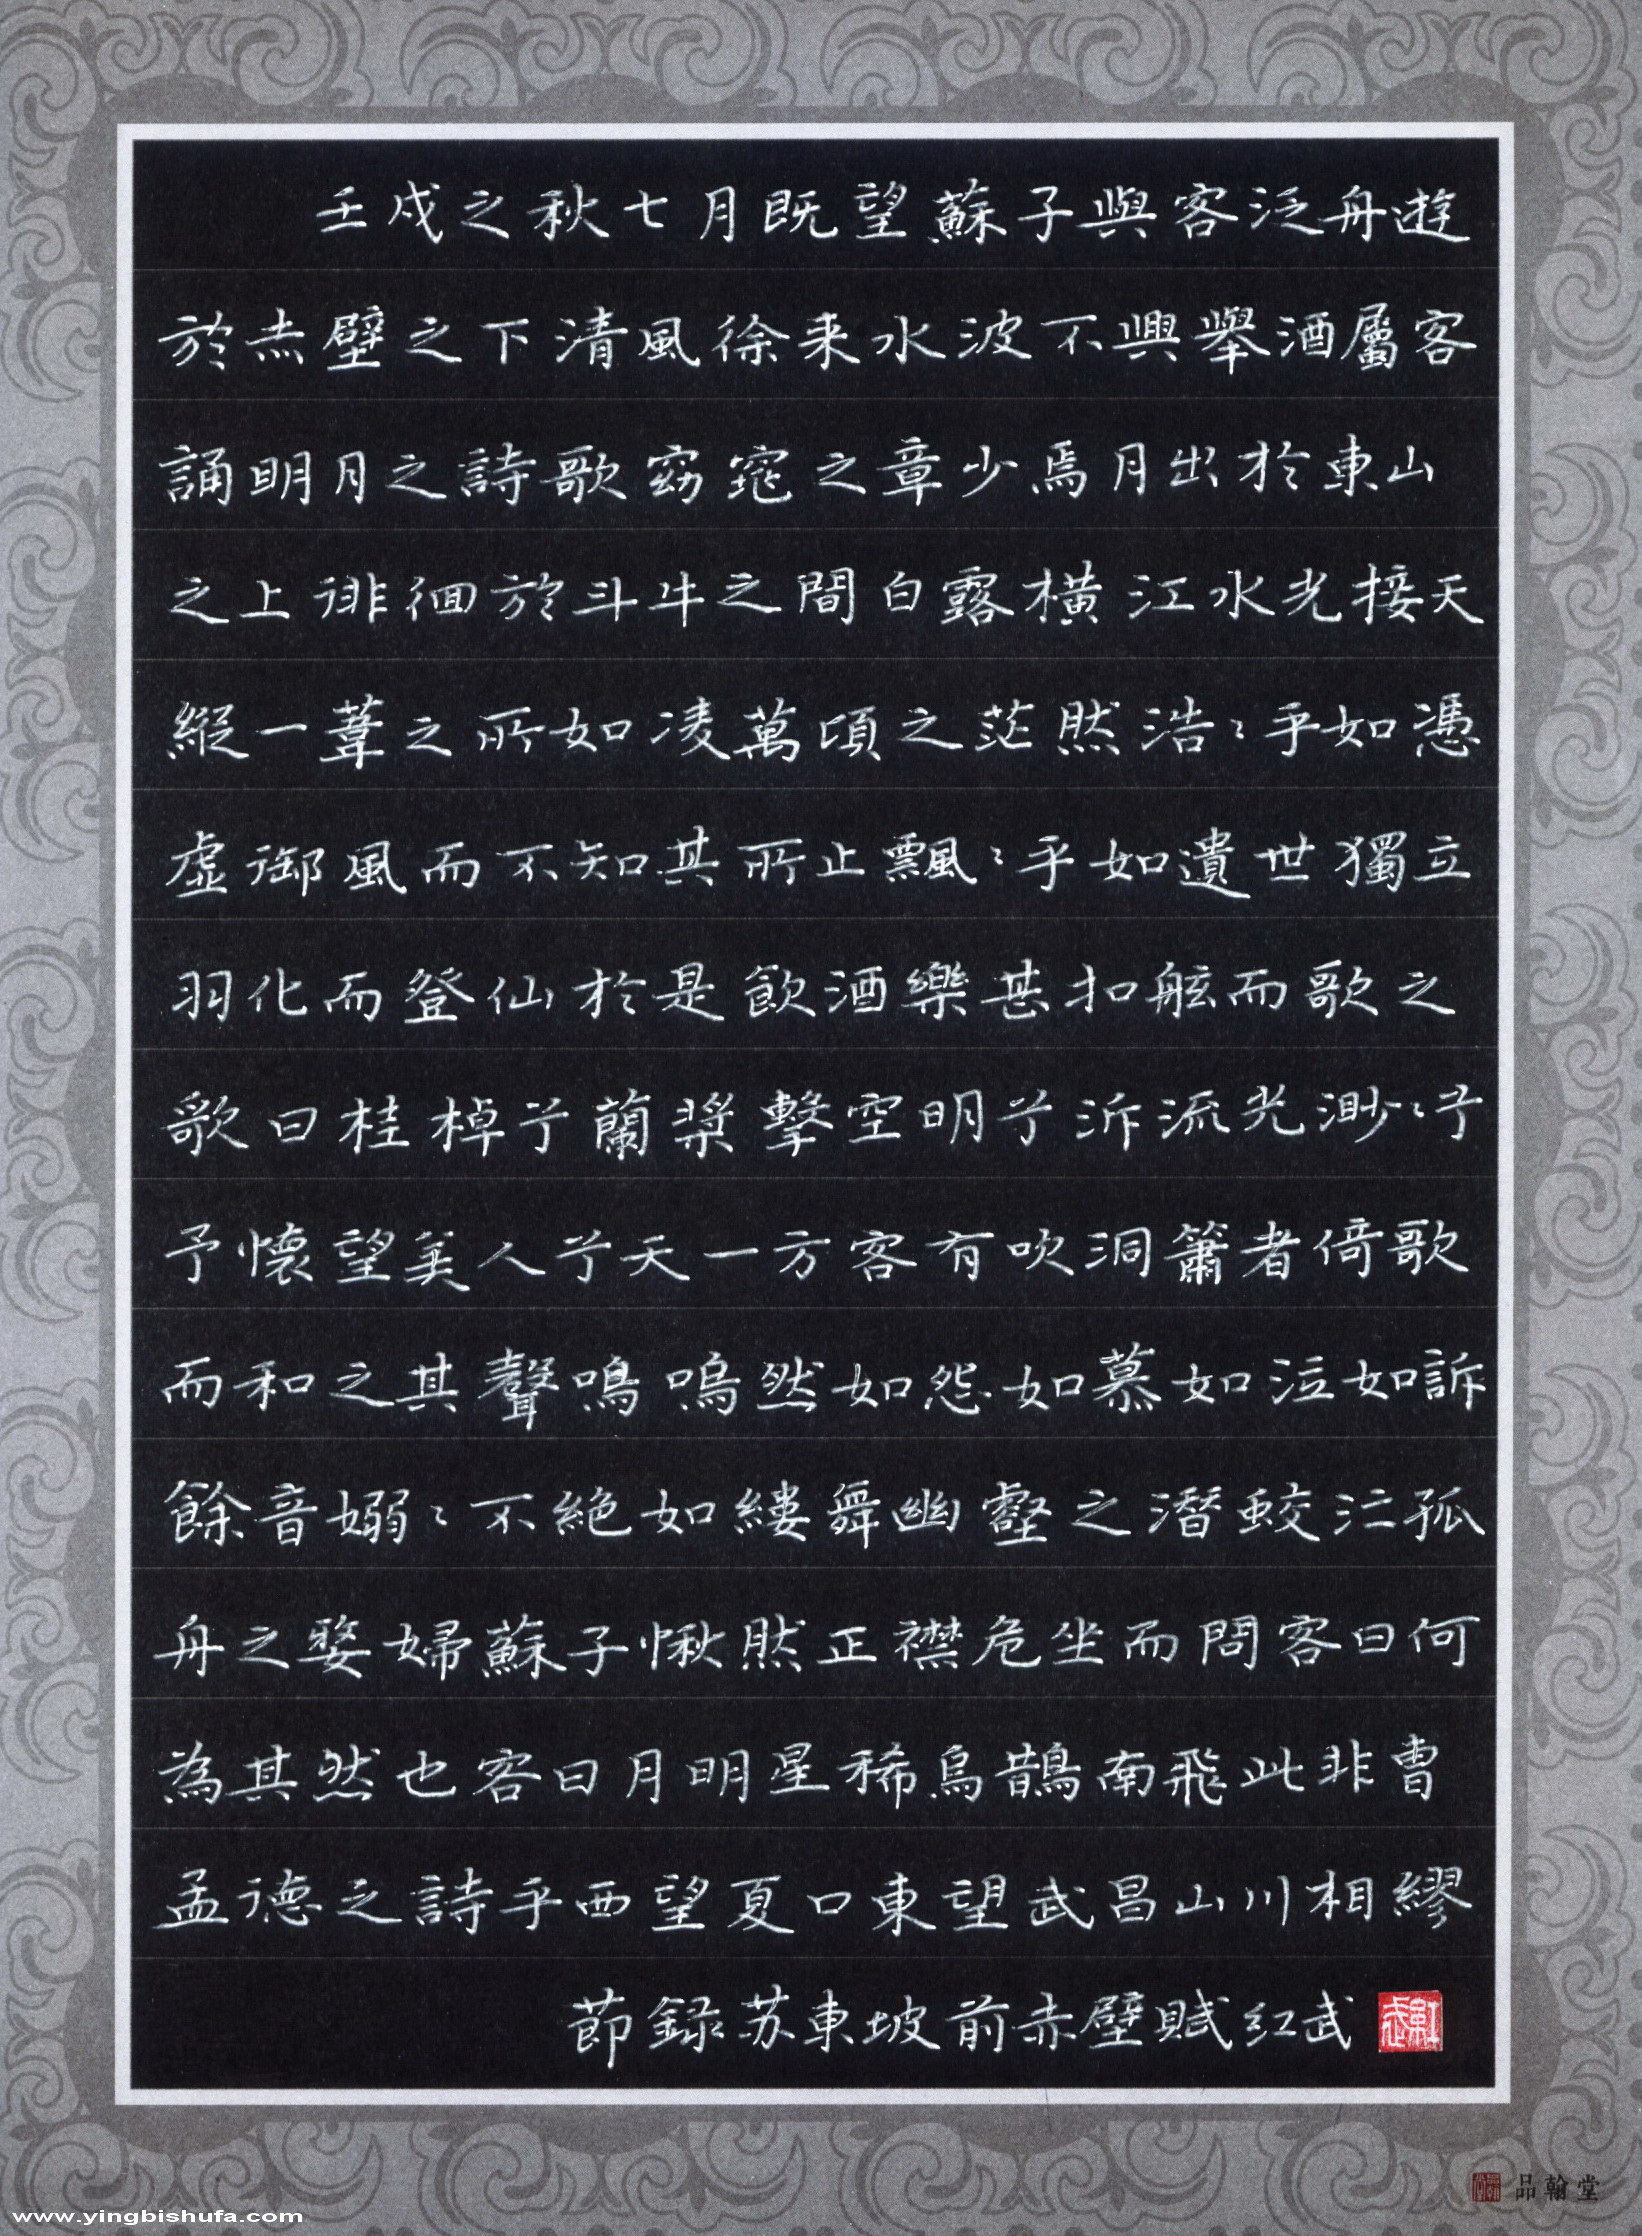 壬戌之秋七月既望蘇子與客泛舟遊
於赤壁之下清風徐来水波不興舉酒屬客
誦明月之詩歌窈窕之章少焉月出於東山
之上徘徊於斗牛之間白露橫江水光接天
縱一葦之所如凌萬頃之茫然浩〻乎如憑
虛御風而不知其所止飄〻乎如遺世獨立
羽化而登仙於是飲酒樂甚扣舷而歌之
歌曰桂棹兮蘭槳擊空明兮泝流光渺〻兮
予懷望美人兮天一方客有吹洞簫者倚歌
而和之其聲鳴嗚然如怨如慕如泣如訴
餘音嫋〻不絕如縷舞幽壑之潛蛟泣孤
舟之嫠婦蘇子愀然正襟危坐而問客曰何
為其然也客曰月明星稀烏鵲南飛此非曹
孟德之詩乎西望夏口東望武昌山川相繆
節録苏東坡前赤壁賦红武
品翰堂
www.yingbishufa.com